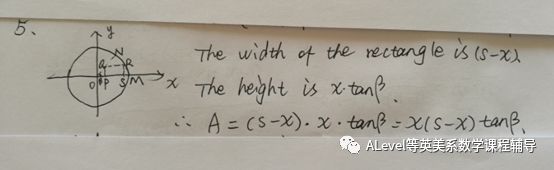 5、
y
N
Q R
O P S M x
The width of the rectangle is (s-x)
The height is x·tanβ.
∴ A = (s-x)·x·tanβ = x(s-x)tanβ.
ALevel等英美系数学课程辅导